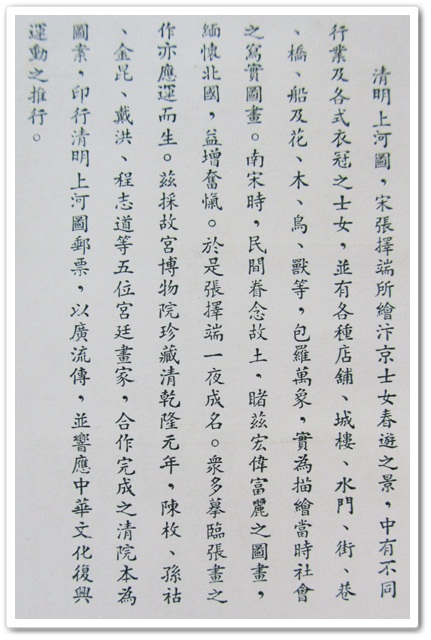 清明上河圖，宋張擇端所繪汴京士女春遊之景，中有不同
行業及各式衣冠之士女，並有各種店舖、城樓、水門、街、巷
、橋、船及花、木、鳥、獸等，包羅萬象，實為描繪當時社會
之寫實圖畫。南宋時，民間眷念故土，睹茲宏偉富麗之圖畫，
緬懷北國，益增奮愾。於是張擇端一夜成名。衆多摹臨張畫之
作亦應運而生。茲採故宮博物院珍藏清乾隆元年，陳枚、孫祜
、金昆、戴洪、程志道等五位宮廷畫家，合作完成之清院本為
圖案，印行清明上河圖郵票，以廣流傳，並響應中華文化復興
運動之推行。